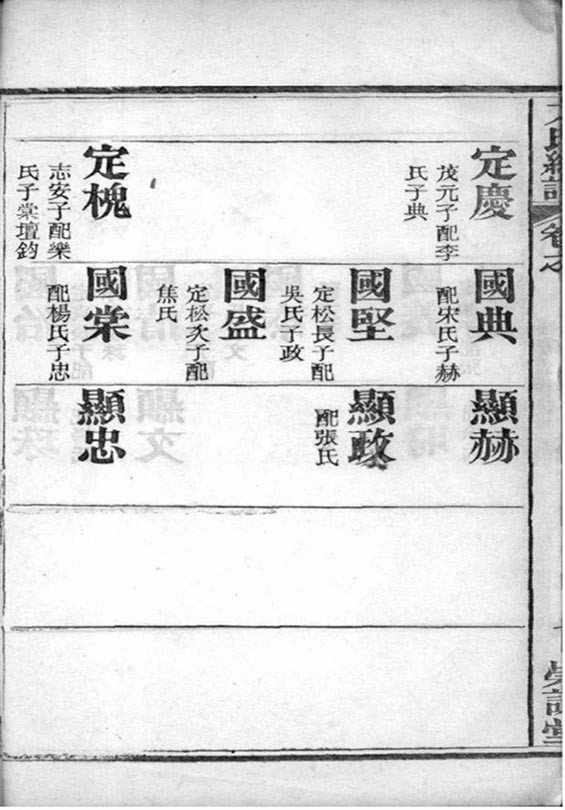 定慶
茂元子配李
氏子典
定槐
志安子配樂
氏子棠壇鈞
國典
配宋氏子赫
國堅
定松長子配
吳氏子政
國盛
定松次子配
焦氏
國棠
配楊氏子忠
顯赫
顯政
配張氏
顯忠